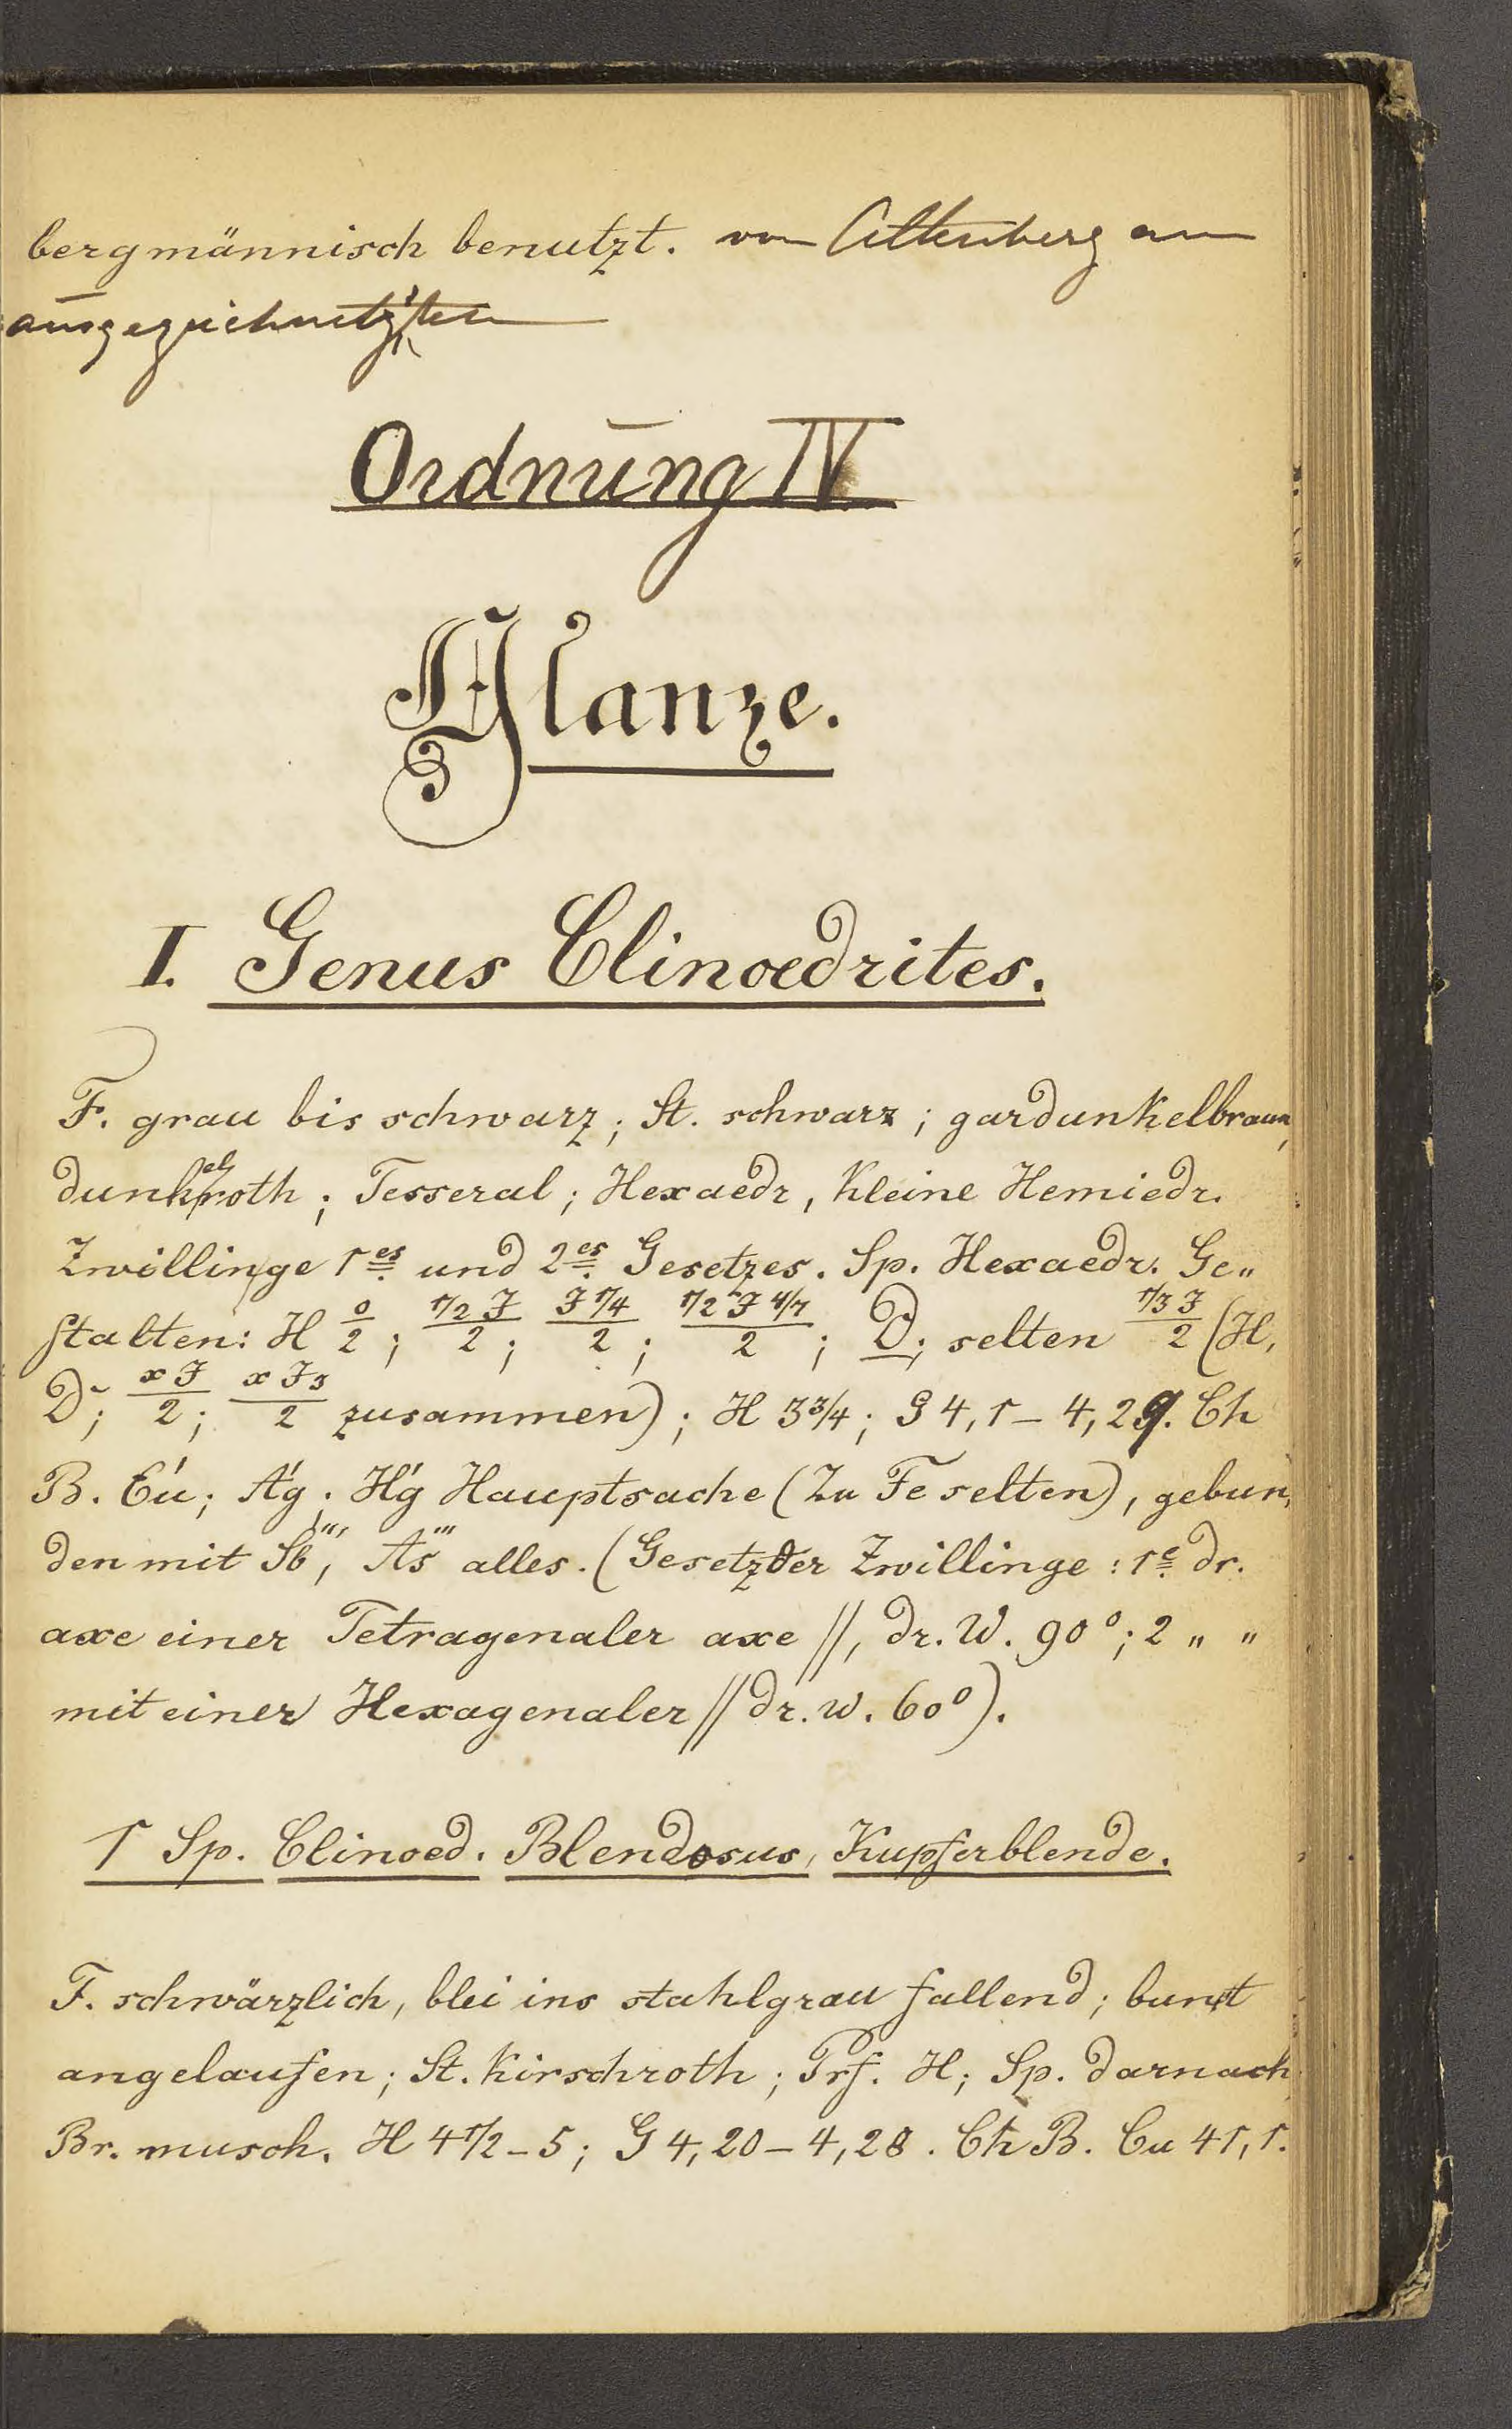 bergmännisch benutzt. von Altenberg am
ausgezeichnetsten
Ordnung IV
Glanze.
I. Genus Clinoedrites.
F. grau bis schwarz; St. schwarz; gardunkelbraun,
dunkelroth; Tesseral; Hexaedr, kleine Hemiedr.
Zwillinge 1es und 2es Gesetzes. Sp. Hexaedr. Ge„
stalten: H 0/2; (1/2 J)/2; (J 1/4)/2; (1/2 J 4/7)/2; D; selten (1/3 J)/2 (H,
D; (x J)/2; (x J3)/2 zusammen); H 3 3/4; G 4,1 – 4,29. Ch
B. Cú; Aǵ; Hǵ Hauptsache (Zu Fe selten), gebun„
den mit Sb''', As''' alles. (Gesetz der Zwillinge: 1e dr.
axe einer Tetragenaler axe //, dr. W. 90°; 2 „ „
mit einer Hexagenaler // dr. w. 60°).
1 Sp. Clinoed. Blendosus, Kupferblende.
F. schwärzlich, blei ins stahlgrau fallend; bunt
angelaufen; St. kirschroth; Prf. H; Sp. darnach
Br. musch. H 4 1/2 – 5; G 4,20 – 4,28. Ch B. Cu 41,1.